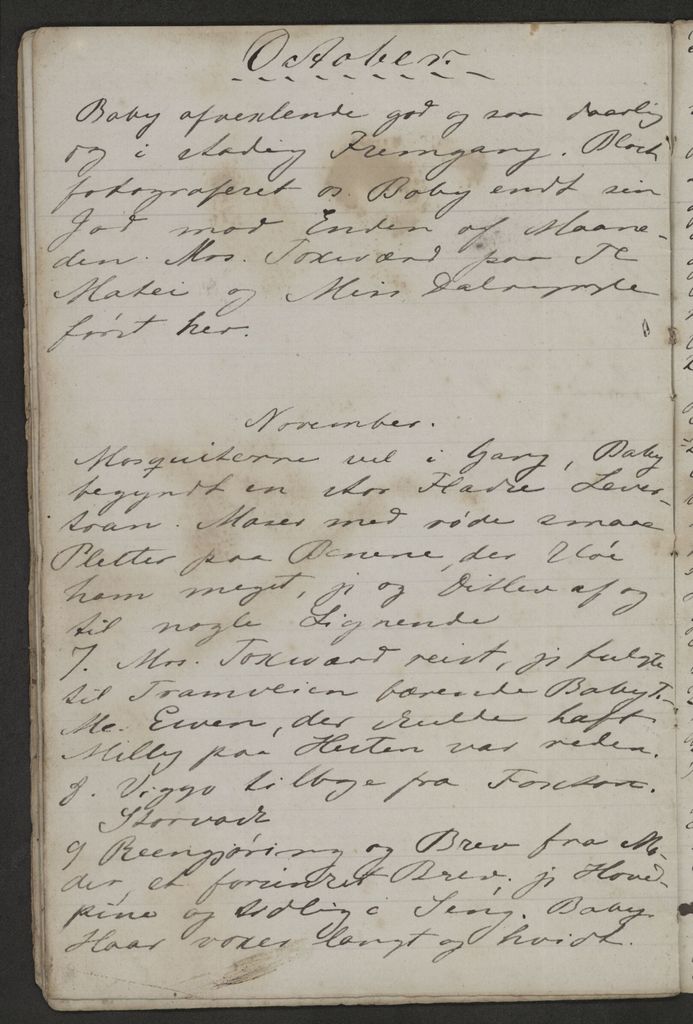 October.
Baby afvexlende god og saa daarlig
og i stadig Fremgang. Bloch
fotograferet os. Baby endt sin
Jod mod Enden af Maane-
den. Mrs. Toxward paa Te
Matei og Miss Dalrymple
først her.
November.
Mosquiterne vel i Gang, Baby
begyndt en stor Flaske Lever-
tran. Maser med røde smaae
Pletter paa Benene, der kløe
ham meget, jeg og Ditlev af og
til nogle Lignende
7. Mrs. Toxward reist, jeg fulgte
til Tramveien bærende Baby.
Mc. Ewen, der skulde haft
Milly paa Hesten var reden.
8. Viggo tilbage fra Foxton.
Storvask
9 Reengjøring og Brev fra Mo-
der, et Brev. jeg Hoved-
pine og tidlig i Seng. Baby
Haar voxer langt og hvidt.